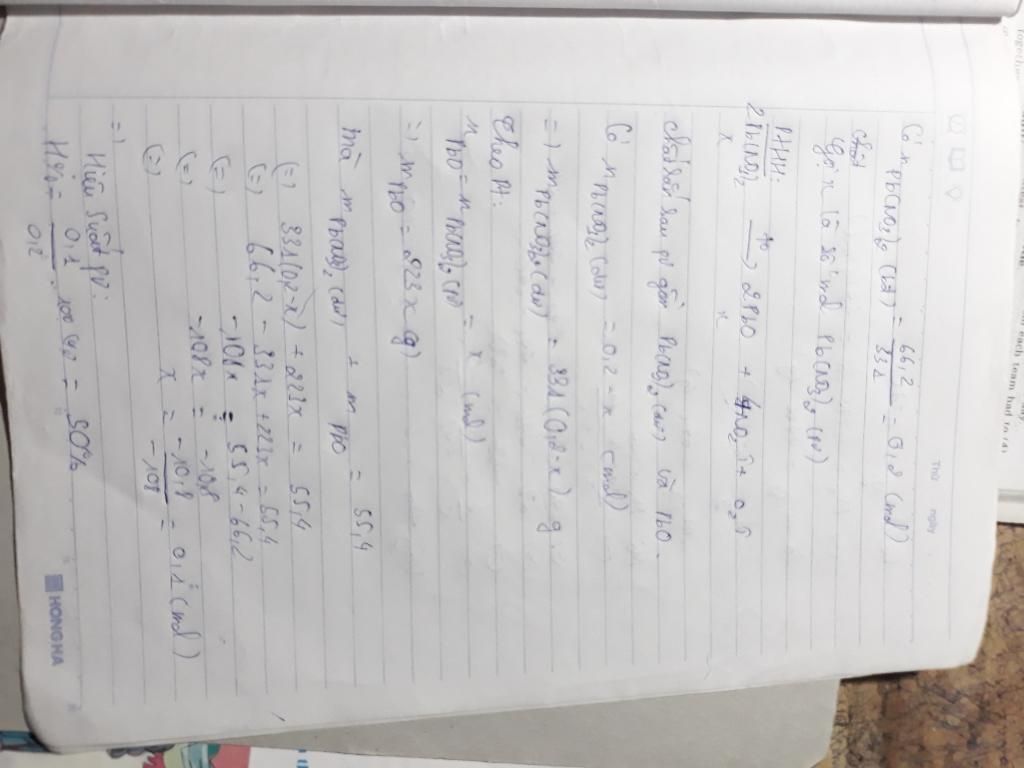 Thứ ngày
Có n Pb(NO3)2 (bđ) = 66,2 / 331 = 0,2 (mol)
Gọi x là số mol Pb(NO3)2 (PƯ)
PTHH:
2Pb(NO3)2 to → 2PbO + 4NO2 + O2
x x
Chất rắn sau pư gồm Pb(NO3)2 (dư) và PbO
Có n Pb(NO3)2 (dư) = 0,2 - x (mol)
=) m Pb(NO3)2 (dư) = 331(0,2-x) g
Theo Pt:
n PbO = n Pb(NO3)2 (PƯ) = x (mol)
=) m PbO = 223x (g)
mà m Pb(NO3)2 (dư) + m PbO = 55,4
(=) 331(0,2-x) + 223x = 55,4
(=) 66,2 - 331x + 223x = 55,4
(=) -108x = 55,4 - 66,2
(=) -108x = -10,8
(=) x = -10,8 / -108 = 0,1 (mol)
=) Hiệu suất pư:
H% = 0,1 / 0,2 . 100% = 50%
HONG HA
together
each team had to